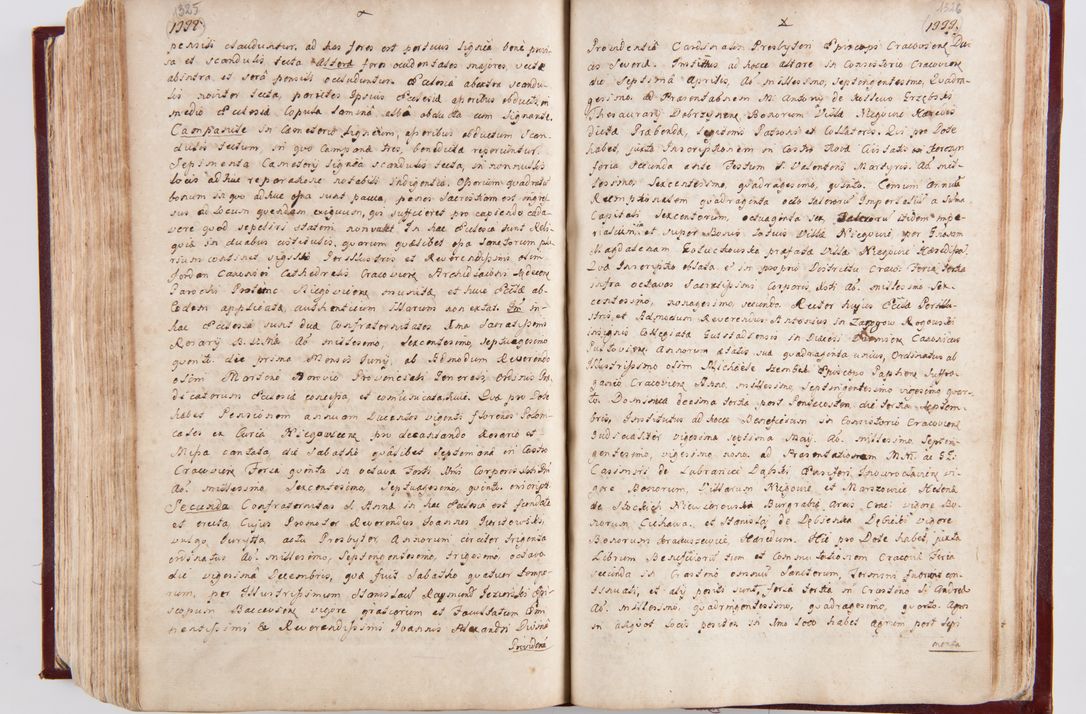 1325
1998
pensili clauduntur, ad has fores est porticus lignea bene provi-
sa et scandulis tecta. Altera fores occidentales majores vecte
abintra et sera pensili occluduntur. Ecclesia abextra scandu-
lis noviter tecta, parietes ipsius Ecclesiæ asseribus obducti, in
medio Ecclesiæ Copula laminâ albâ obducta cum Signante.
Campanile in Cæmeterio ligneum, asseribus obductum scan-
dulis tectum, in quo Campanæ tres, benedictæ reperiuntur.
Sepimenta Cæmeterij lignea scandulis tecta, in nonnullis
locis adhuc reparatione notabili indigentia. Ossorium quadratum
bonum in quo adhuc ossa sunt pauca, penes Sacrestiam est ingres-
sus ad locum quendam exiguum, qui sufficeret pro capiendo cada-
vere quod sepeliri statem non valet. In hac Ecclesia sunt Reli-
quiæ in duabus
rium continet sigillo Perillustris et Reverendissimi olim
Jordan Canonici Cathedralis Cracovien Archidiaconi
Parochi Niegovicen munita, et huic Ecclæ ab
eodem applicata, authenticum illarum non extat. In
hac Ecclesia sunt duæ Confraternitates Ima Sacratissimi
Rosarij B.V.Mæ Aō millesimo, sexcentesimo, septuagesimo
quinto die prima Mensis Junij, ab Admodum Reverendo
olim Provinciali Generali, Ordinis Præ-
dicatorum Ecclesiæ concessa, et communicata huic. Quæ pro Dote
habet Pensionem annuam Ducentos viginti florenos Polon-
cales ex Curia Niegovicen pro decantando Rosario et
Missa cantata die Sabatho qualibet septimana in Castro
Cracovien Feria quinta in octava Festi Smi Corporis Xsti Dni
Aō millesimo, sexcentesimo, septuagesimo, quinto
Secunda Confraternitas S. Annæ in hac Ecclesia est fundata
et erecta, Cujus Promotor Reverendus Joannes Juristowski,
vulgo, actu Presbyter Annorum circiter triginta
ordinatus Aō millesimo, septingentesimo, trigesimo, octavo
die vigesima Decembris, quæ fuit Sabatho quatuor tempo-
rum, per Illustrissimum Stanislaum Raymund Jezierski Epi-
scopum Baccovien vigore gratiarum et facultatum Emi-
nentissimi & Reverendissimi Joannis Alexandri Divinâ
Providentiâ
1326
1999
Providentiâ Cardinalis Presbyteri Episcopi Cracovien Du-
cis Severiæ. Institutus ad hocce altare in Consistorio Cracovien
die septima Aprilis, Aō millesimo, septingentesimo, Quadra-
gesimo ad Præsentationem M. Antonij de Grzębski
Thesaurarij Dobrzynen Bonorum Villæ Niegovic Hæredis
dictæ Præbendæ, legitimi Patroni et Collatoris. Qui pro Dote
habet, juxta Inscriptionem in Castro Novæ Civitatis
Feria secunda ante Festum S. Valentini Martyris Aō mil-
lesimo, sexcentesimo, quadragesimo, quinto. Censum annuæ
Reemptionalem quadraginta octo talerorum Imperialium a summa
Capitali sexcentorum, octuaginta sex talerorum itidem impe-
rialium et super Bonis totius Villæ Niegovic per Gnosam
Magdalenam Żoluchowska præfatæ Villæ Niegovic Hæredissam
Quæ Inscriptio oblata e in proprio Districtu Cracov Feria sexta
infra octavas Sacratissimi Corporis Xsti Aō millesimo sex-
centesimo, nonagesimo, secundo. Rector hujus Eccliæ Perillu-
stris et Admodum Reverendus Antonius in Zarogow Rogowski
insignis Collegiatæ Gutstadiensis in Diæcesi Canonicus
Pultovien, Annorum ætatis suæ quadraginta unius, Ordinatus ab
Illustrissimo olim Michaele Szembek Episcopo Paphen Suffra-
ganeo Cracovien Anno, millesimo, septuingentesimo vigesimo quar-
to. Dominica decima tertia post Pentecosten die tertia septem-
bris, Institutus ad hocce Beneficium in Consistorio Cracovien
Judicialiter vigesima septima Maij Aō millesimo septin-
gentesimo, vigesimo nono ad Præsentationem
de Lubraniec Dąbski Inowrocłavien vi-
gore Bonorum, Villarum Niegovic et Marszowic Helenæ
de Burgrabiæ Arcis Cracov vigore Bo-
norum Cichawa, et Stanislai de Dębienka Dębicki vigore
Bonorum Hæredum. Hic pro Dote habet, juxta
Librum Beneficiorum et Commutationem Cracoviæ Feria
secunda in Crastino omnium Sanctorum,
et alij positi sunt, Feria tertia in Crastino S. Andreæ
Aō millesimo, quadringentesimo, quadragesimo, quarto. Agros
in aliquot locis positos in Imo loco habet agrum post sepi-
menta